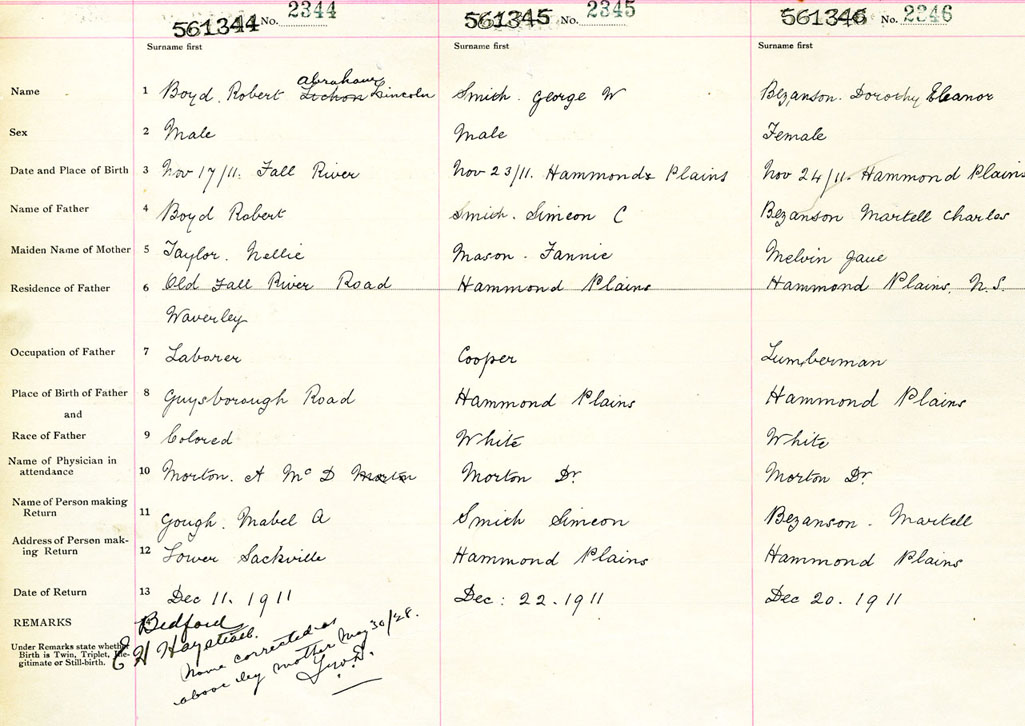 561344 No. 2344 561345 No. 2345 561346 No. 2346
Surname first Surname first Surname first
Name 1 Boyd. Robert Abraham Lincoln Smith. George W Bezanson. Dorothy Eleanor
Sex 2 Male Male Female
Date and Place of Birth 3 Nov 17/11. Fall River Nov 23/11. Hammonds Plains Nov 24/11. Hammond Plains
Name of Father 4 Boyd Robert Smith. Simeon C Bezanson Martell Charles
Maiden Name of Mother 5 Taylor. Nellie Mason - Fannie Melvin Jane
Residence of Father 6 Old Fall River Road Hammond Plains Hammond Plains, N.S.
Waverley
Occupation of Father 7 Laborer Cooper Lumberman
Place of Birth of Father 8 Guysborough Road Hammond Plains Hammond Plains
and
Race of Father 9 Colored White White
Name of Physician in
attendance 10 Morton. A Mc D Morton Morton Dr. Morton Dr.
Name of Person making
Return 11 Gough. Mabel A Smith Simeon Bezanson - Martell
Address of Person mak-
ing Return 12 Lower Sackville Hammond Plains Hammond Plains
Date of Return 13 Dec 11. 1911 Dec: 22. 1911 Dec 20. 1911
REMARKS Bedford
Under Remarks state whether
Birth is Twin, Triplet, Ille-
gitimate or Still-birth.
E H
Name corrected as
above by mother May 30/28.